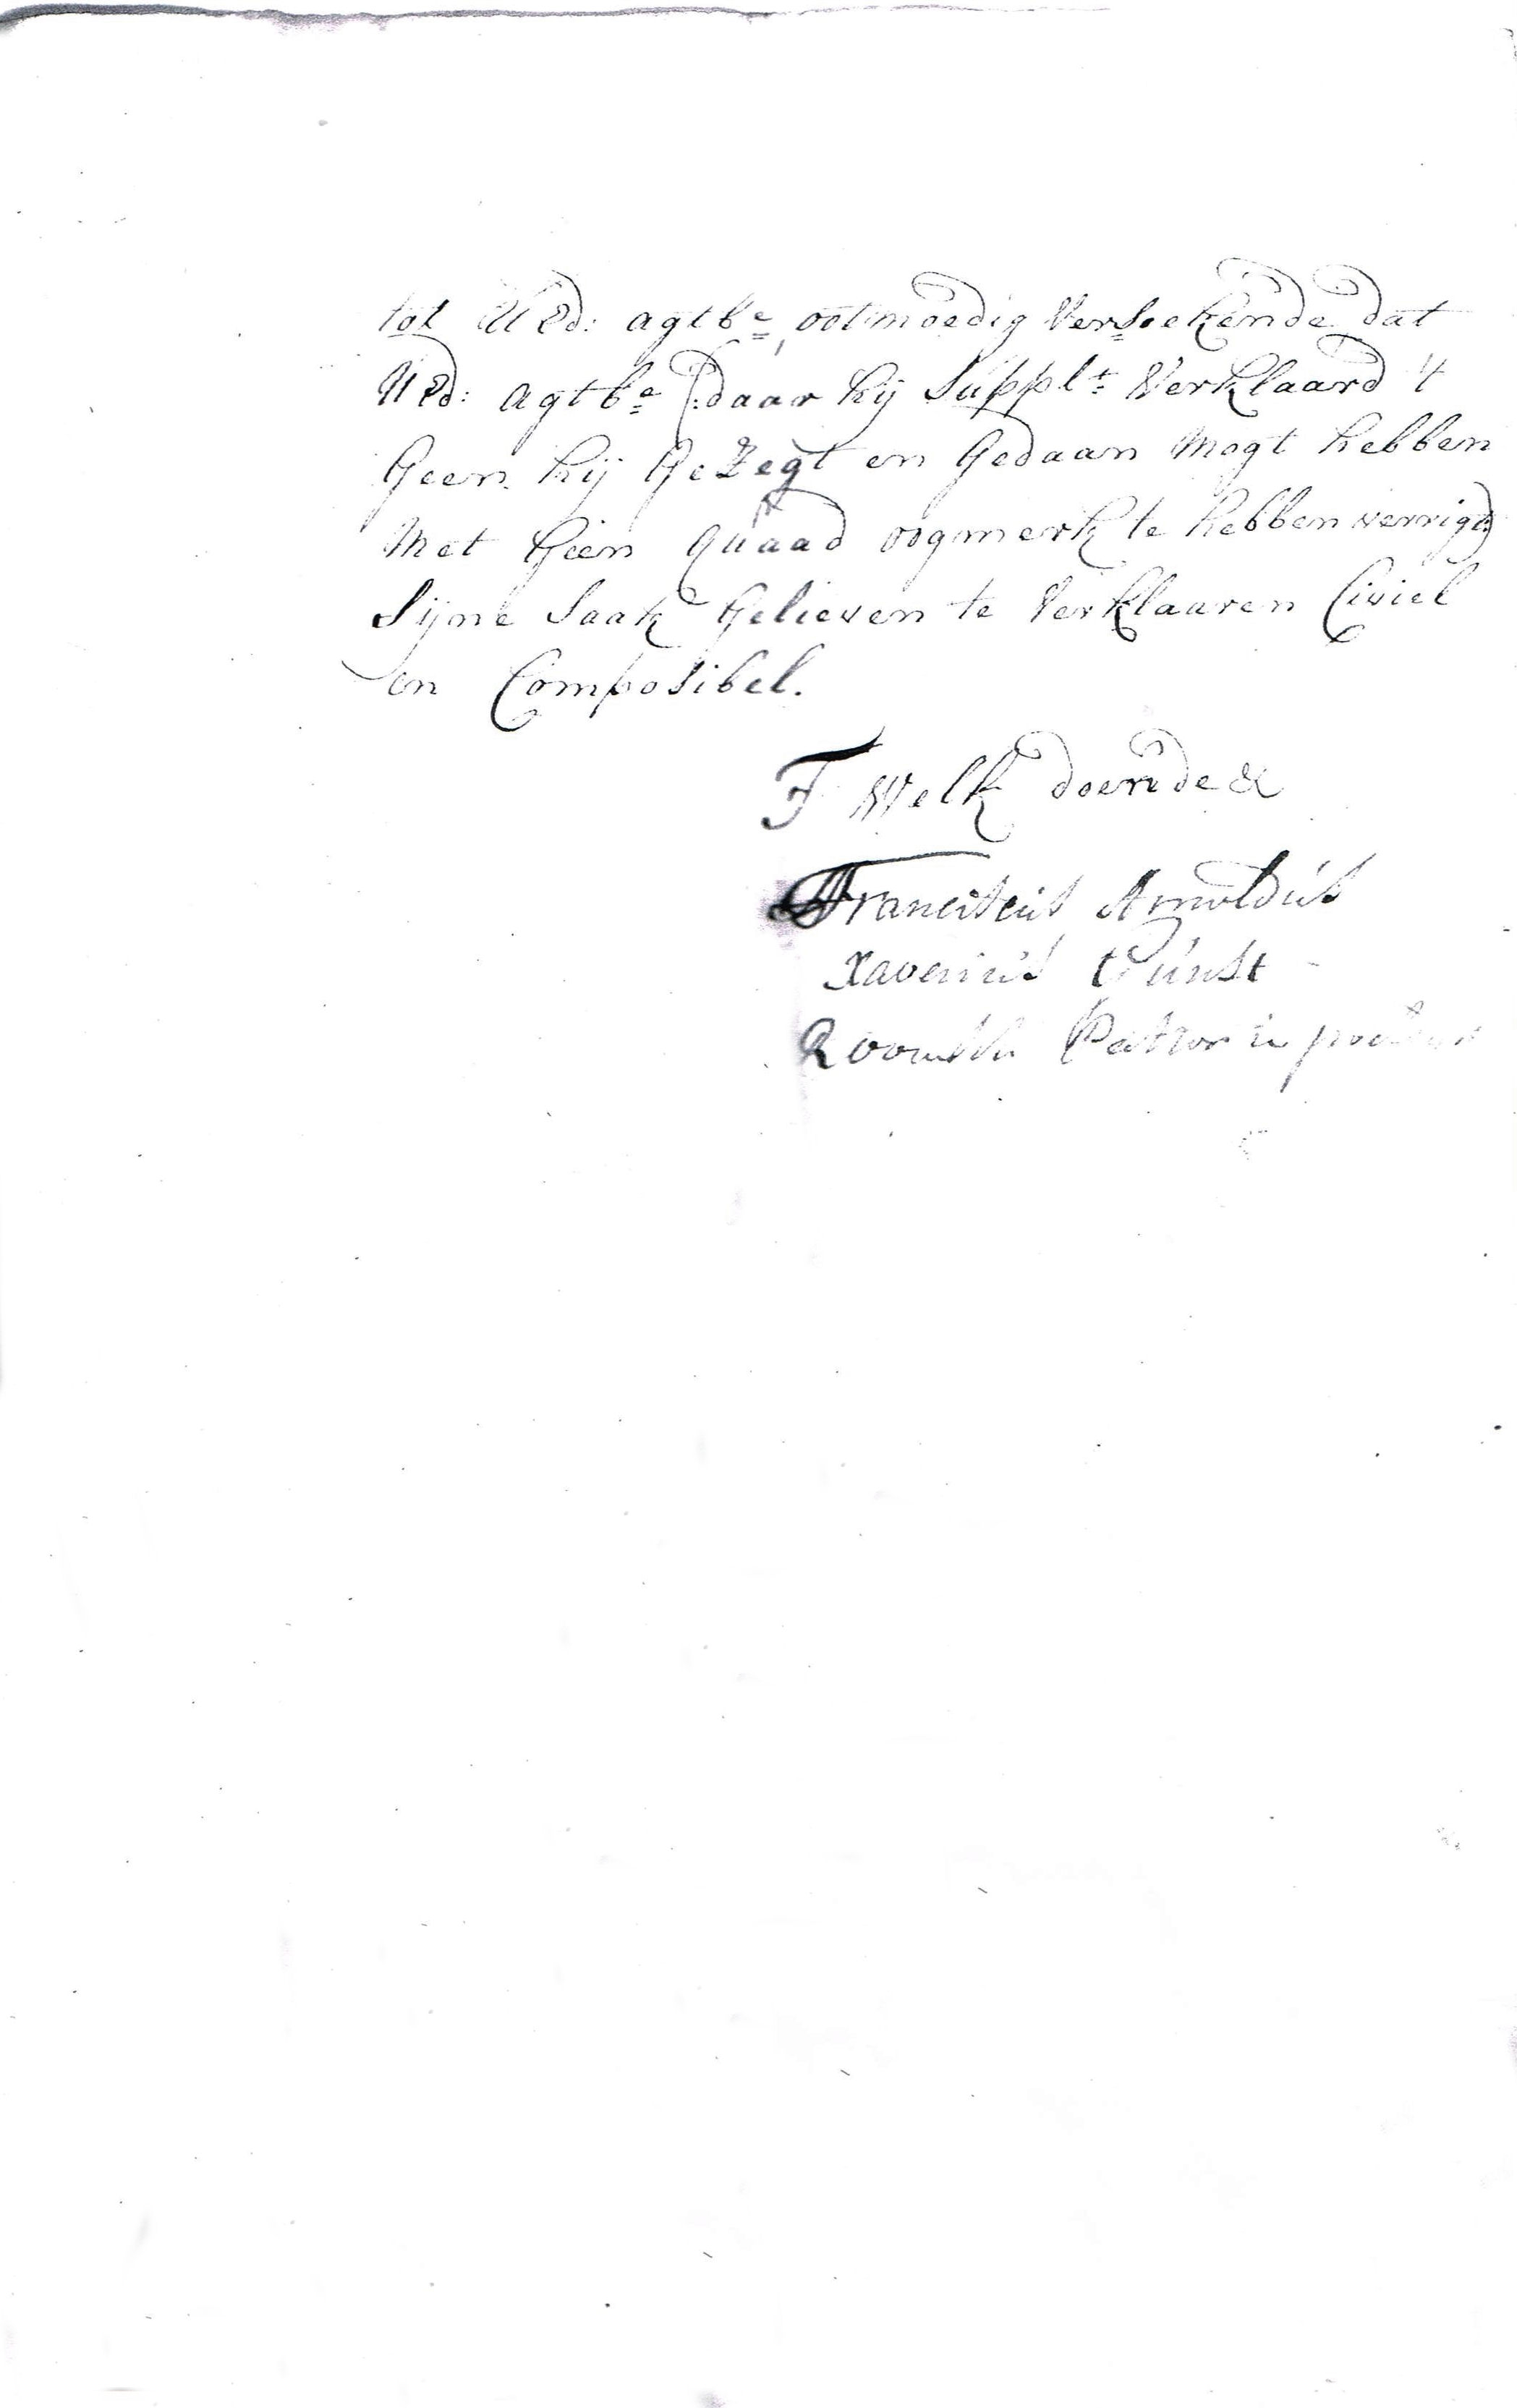 tot UEd: agtbe, ootmoedig Versoekende dat
UEd: agtbe (:daar hij Supplt: Verklaard 't
Geen hij GeZegt en Gedaan Mogt hebben
Met Geen Quaad oogmerk te hebben verrigt:)
Sijne Saak Gelieven te Verklaaren Civiel
en Composibel.
T Welk doende &
Franciscus Arnoldus
Xaverius
Pastor in